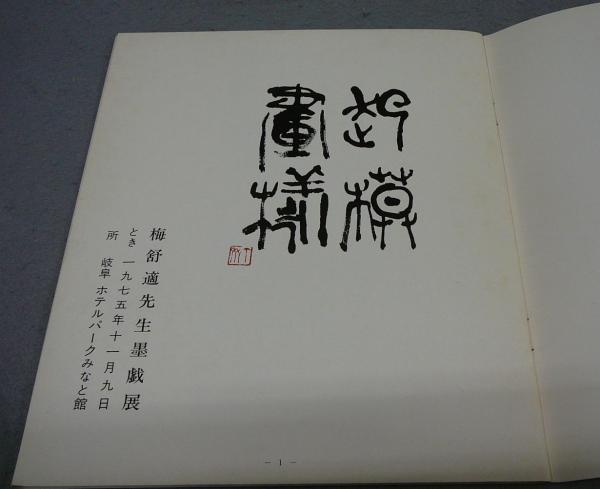 起模
畫樣
梅舒適先生墨戯展
とき 一九七五年十一月九日
所 岐阜 ホテルパークみなと館
— 1 —